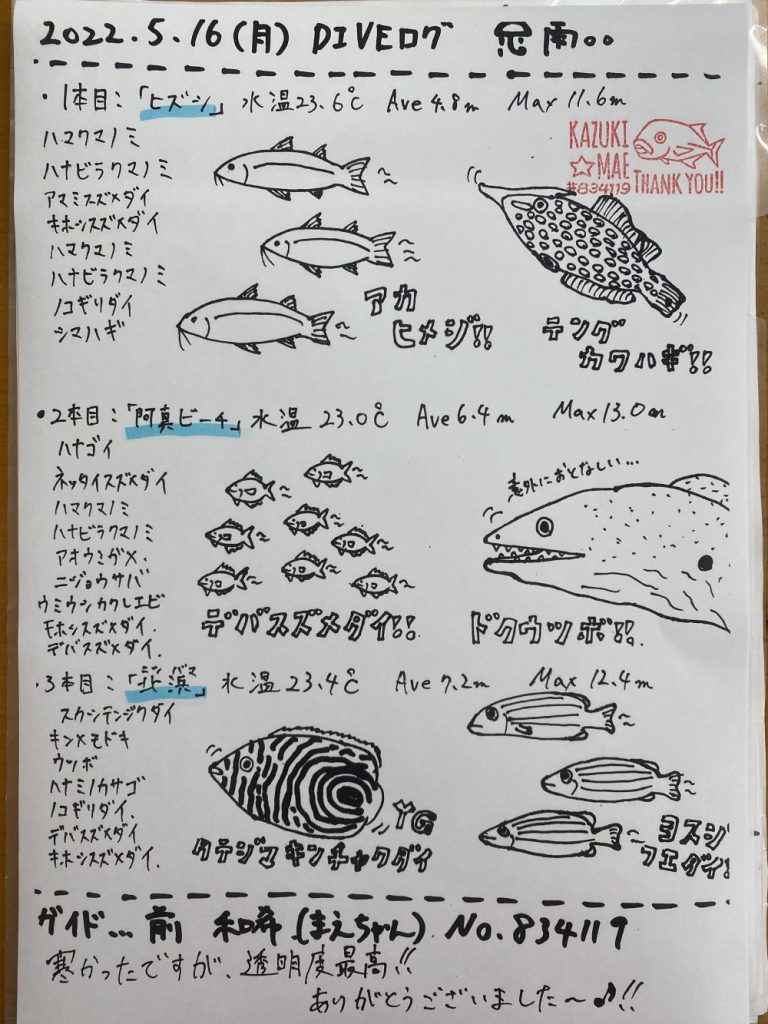 2022.5.16(月) DIVEログ 忍雨。。
・1本目:「ヒズシ」 水温23.6℃ Ave 4.8m Max 11.6m
KAZUKI
☆MAE
#834119 THANK YOU!!
ハマクマノミ
ハナビラクマノミ
アマミスズメダイ
キホシスズメダイ
ハマクマノミ
ハナビラクマノミ
ノコギリダイ
シマハギ
アカ
ヒメジ!!
テング
カワハギ!!
・2本目:「阿真ビーチ」 水温 23.0℃ Ave 6.4m Max 13.0m
ハナゴイ
ネッタイスズメダイ
ハマクマノミ
ハナビラクマノミ
アオウミガメ.
ニジョウサバ
ウミウシカクレエビ
モホシスズメダイ.
デバスズメダイ.
デバスズメダイ!!
意外におとなしい...
ドクウツボ!!.
・3本目:「北浜」 水温 23.4℃ Ave 7.2m Max 12.4m
ニシバマ
スカシテンジクダイ
キンメモドキ
ウツボ
ハナミノカサゴ
ノコギリダイ.
デバスズメダイ
キホシスズメダイ.
YG
タテジマキンチャクダイ
ヨスジ
フエダイ!
ガイド... 前 和希 (まえちゃん) No.834119
寒かったですが、透明度最高!!
ありがとうございました〜♪!!